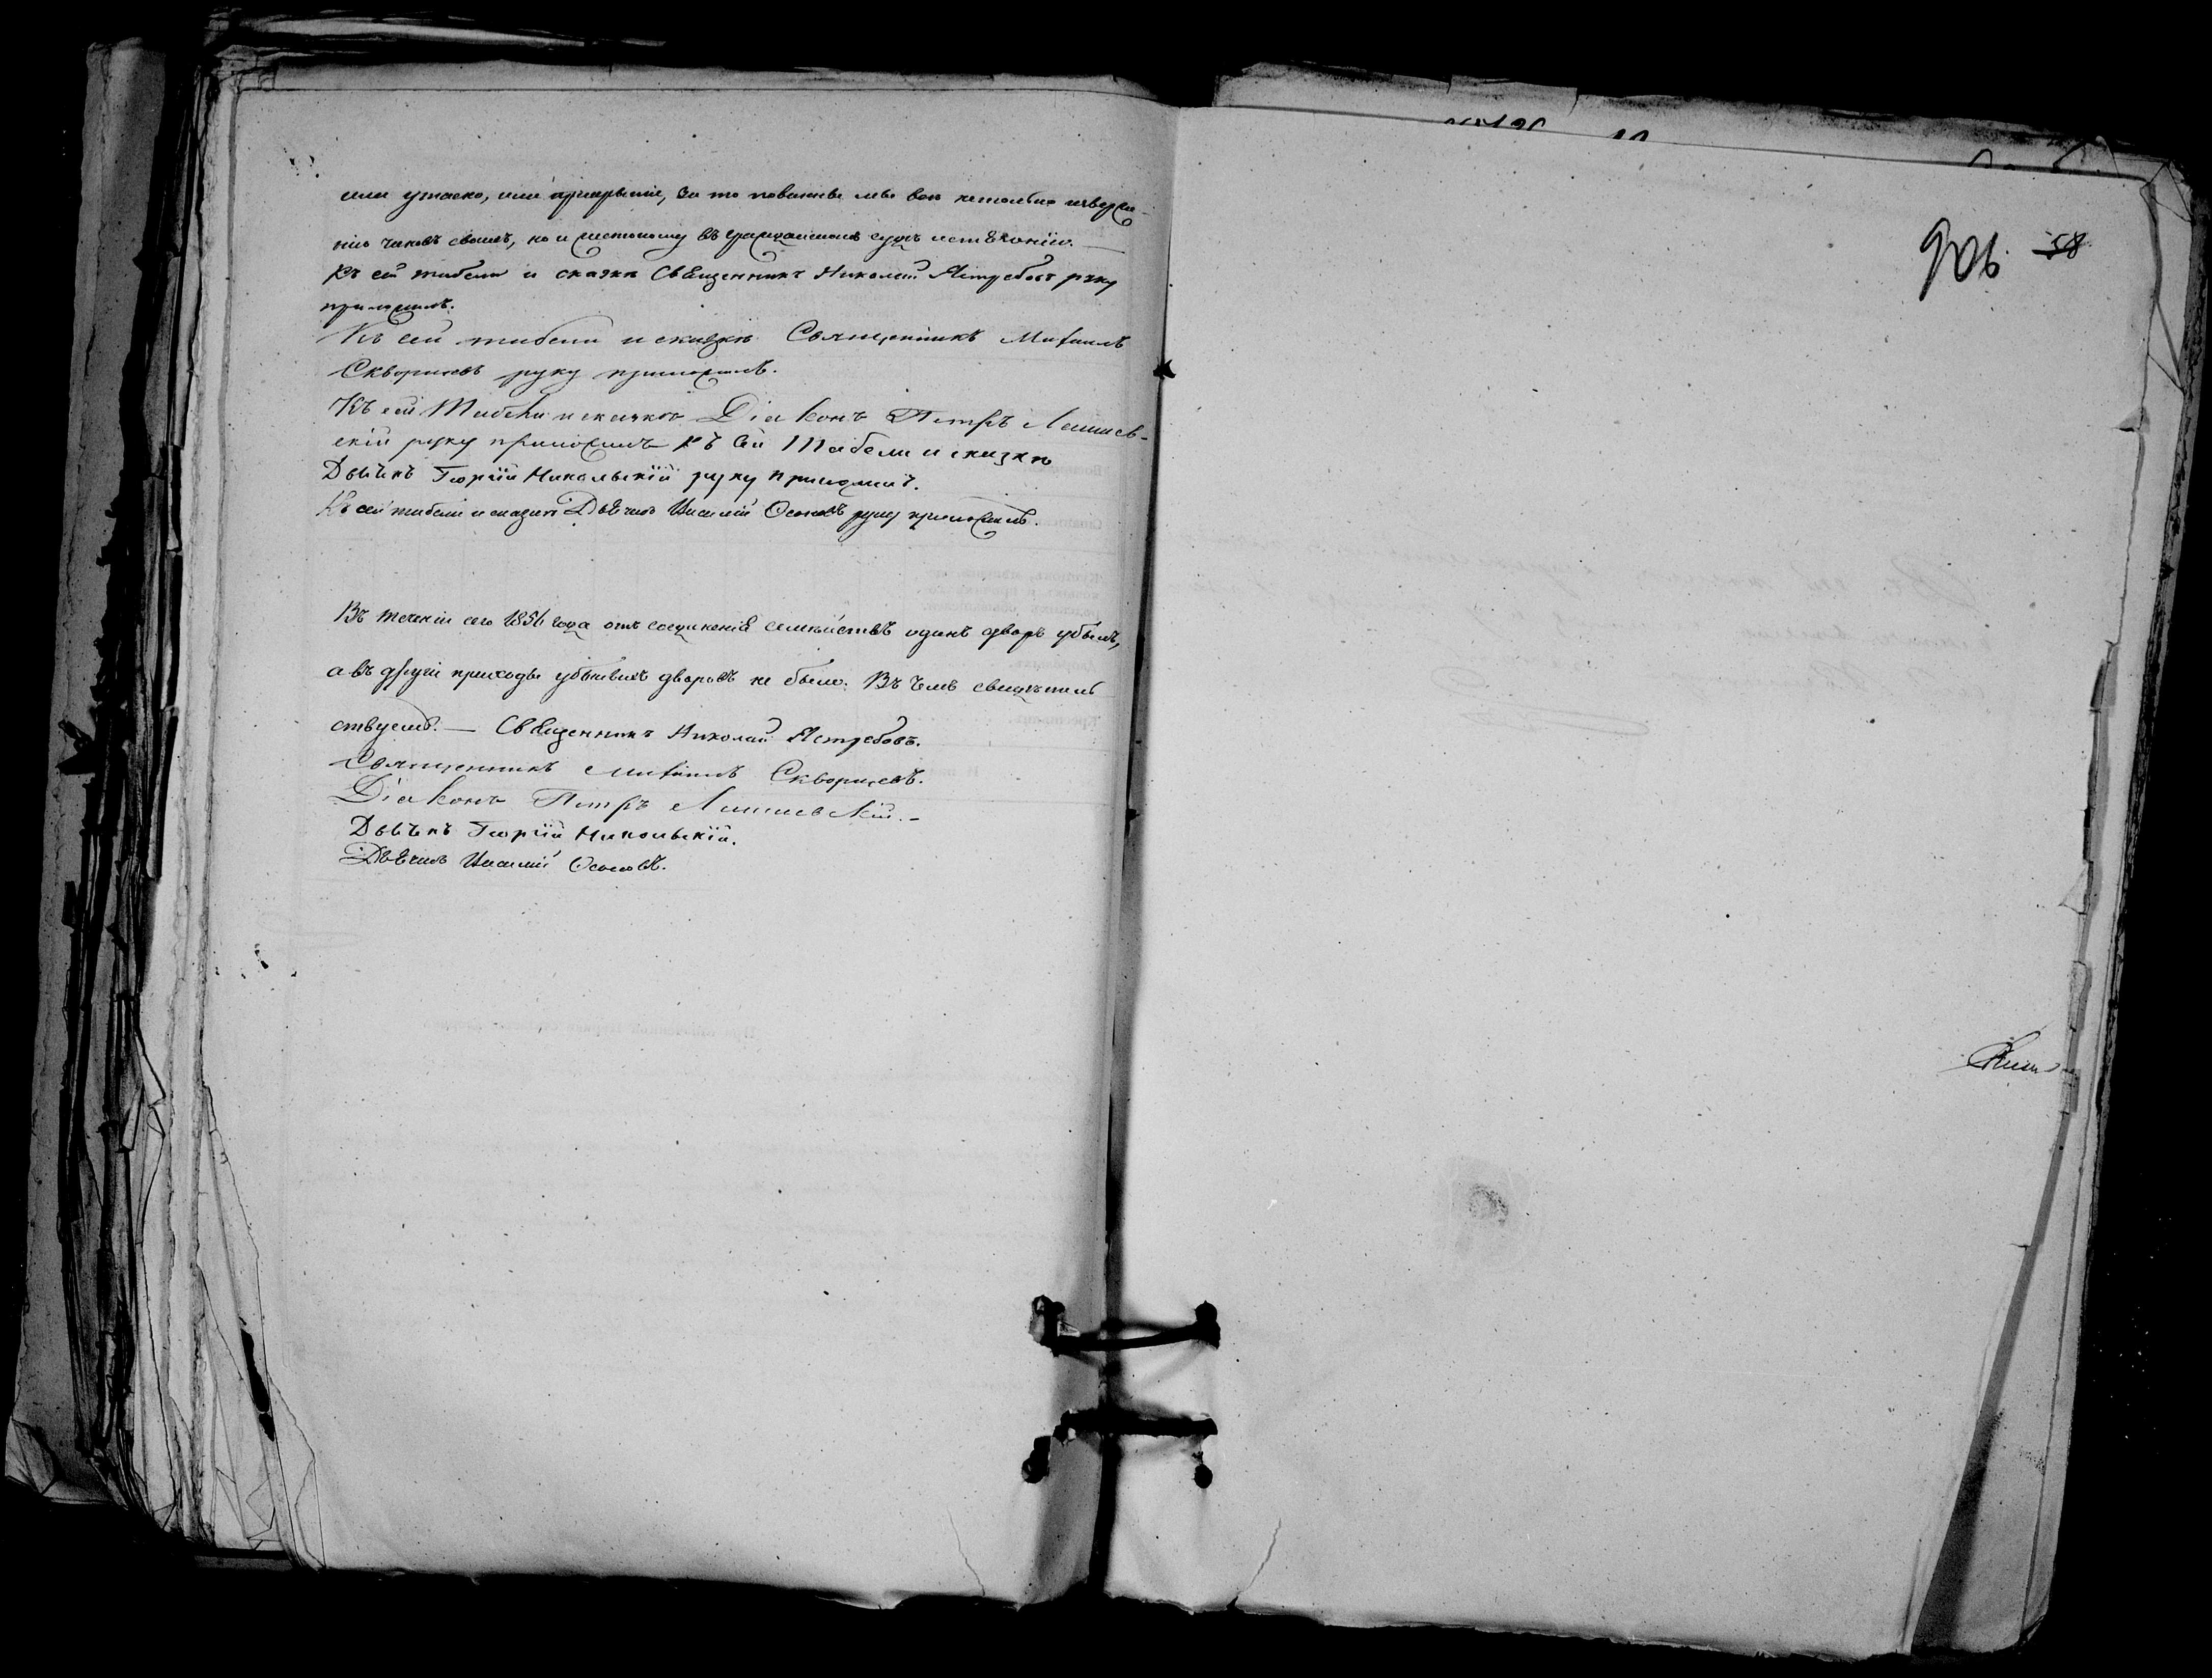 или утаено, или прикрытіе, за то повинны мы вси нетолько изверже-
нію чиновъ своихъ, но и жестокому въ гражданскомъ судѣ истязанію. —
Къ сей табели и сказкѣ Священникъ Николай Ястребовъ руку
приложилъ.
Къ сей табели и сказкѣ Священникъ Михаилъ
Скворцевъ руку приложилъ.
Къ сей Табели и сказкѣ Діаконъ Петръ
скій руку приложилъ Къ сей Табели и сказкѣ
Дьячекъ Георгій Никольскій руку приложилъ.
Къ сей табели и сказкѣ Дьячекъ Осиповъ руку приложилъ.
Въ теченіи сего 1856 года отъ соединенія семействъ одинъ дворъ убылъ,
а въ другіе приходы убывшихъ дворовъ не было. Въ чемъ свидѣтель
ствуемъ. — Священникъ Николай Ястребовъ.
Священникъ Михаилъ Скворцевъ.
Діаконъ Петръ
Дьячекъ Георгій Никольскій.
Дьячекъ Осиповъ.
58